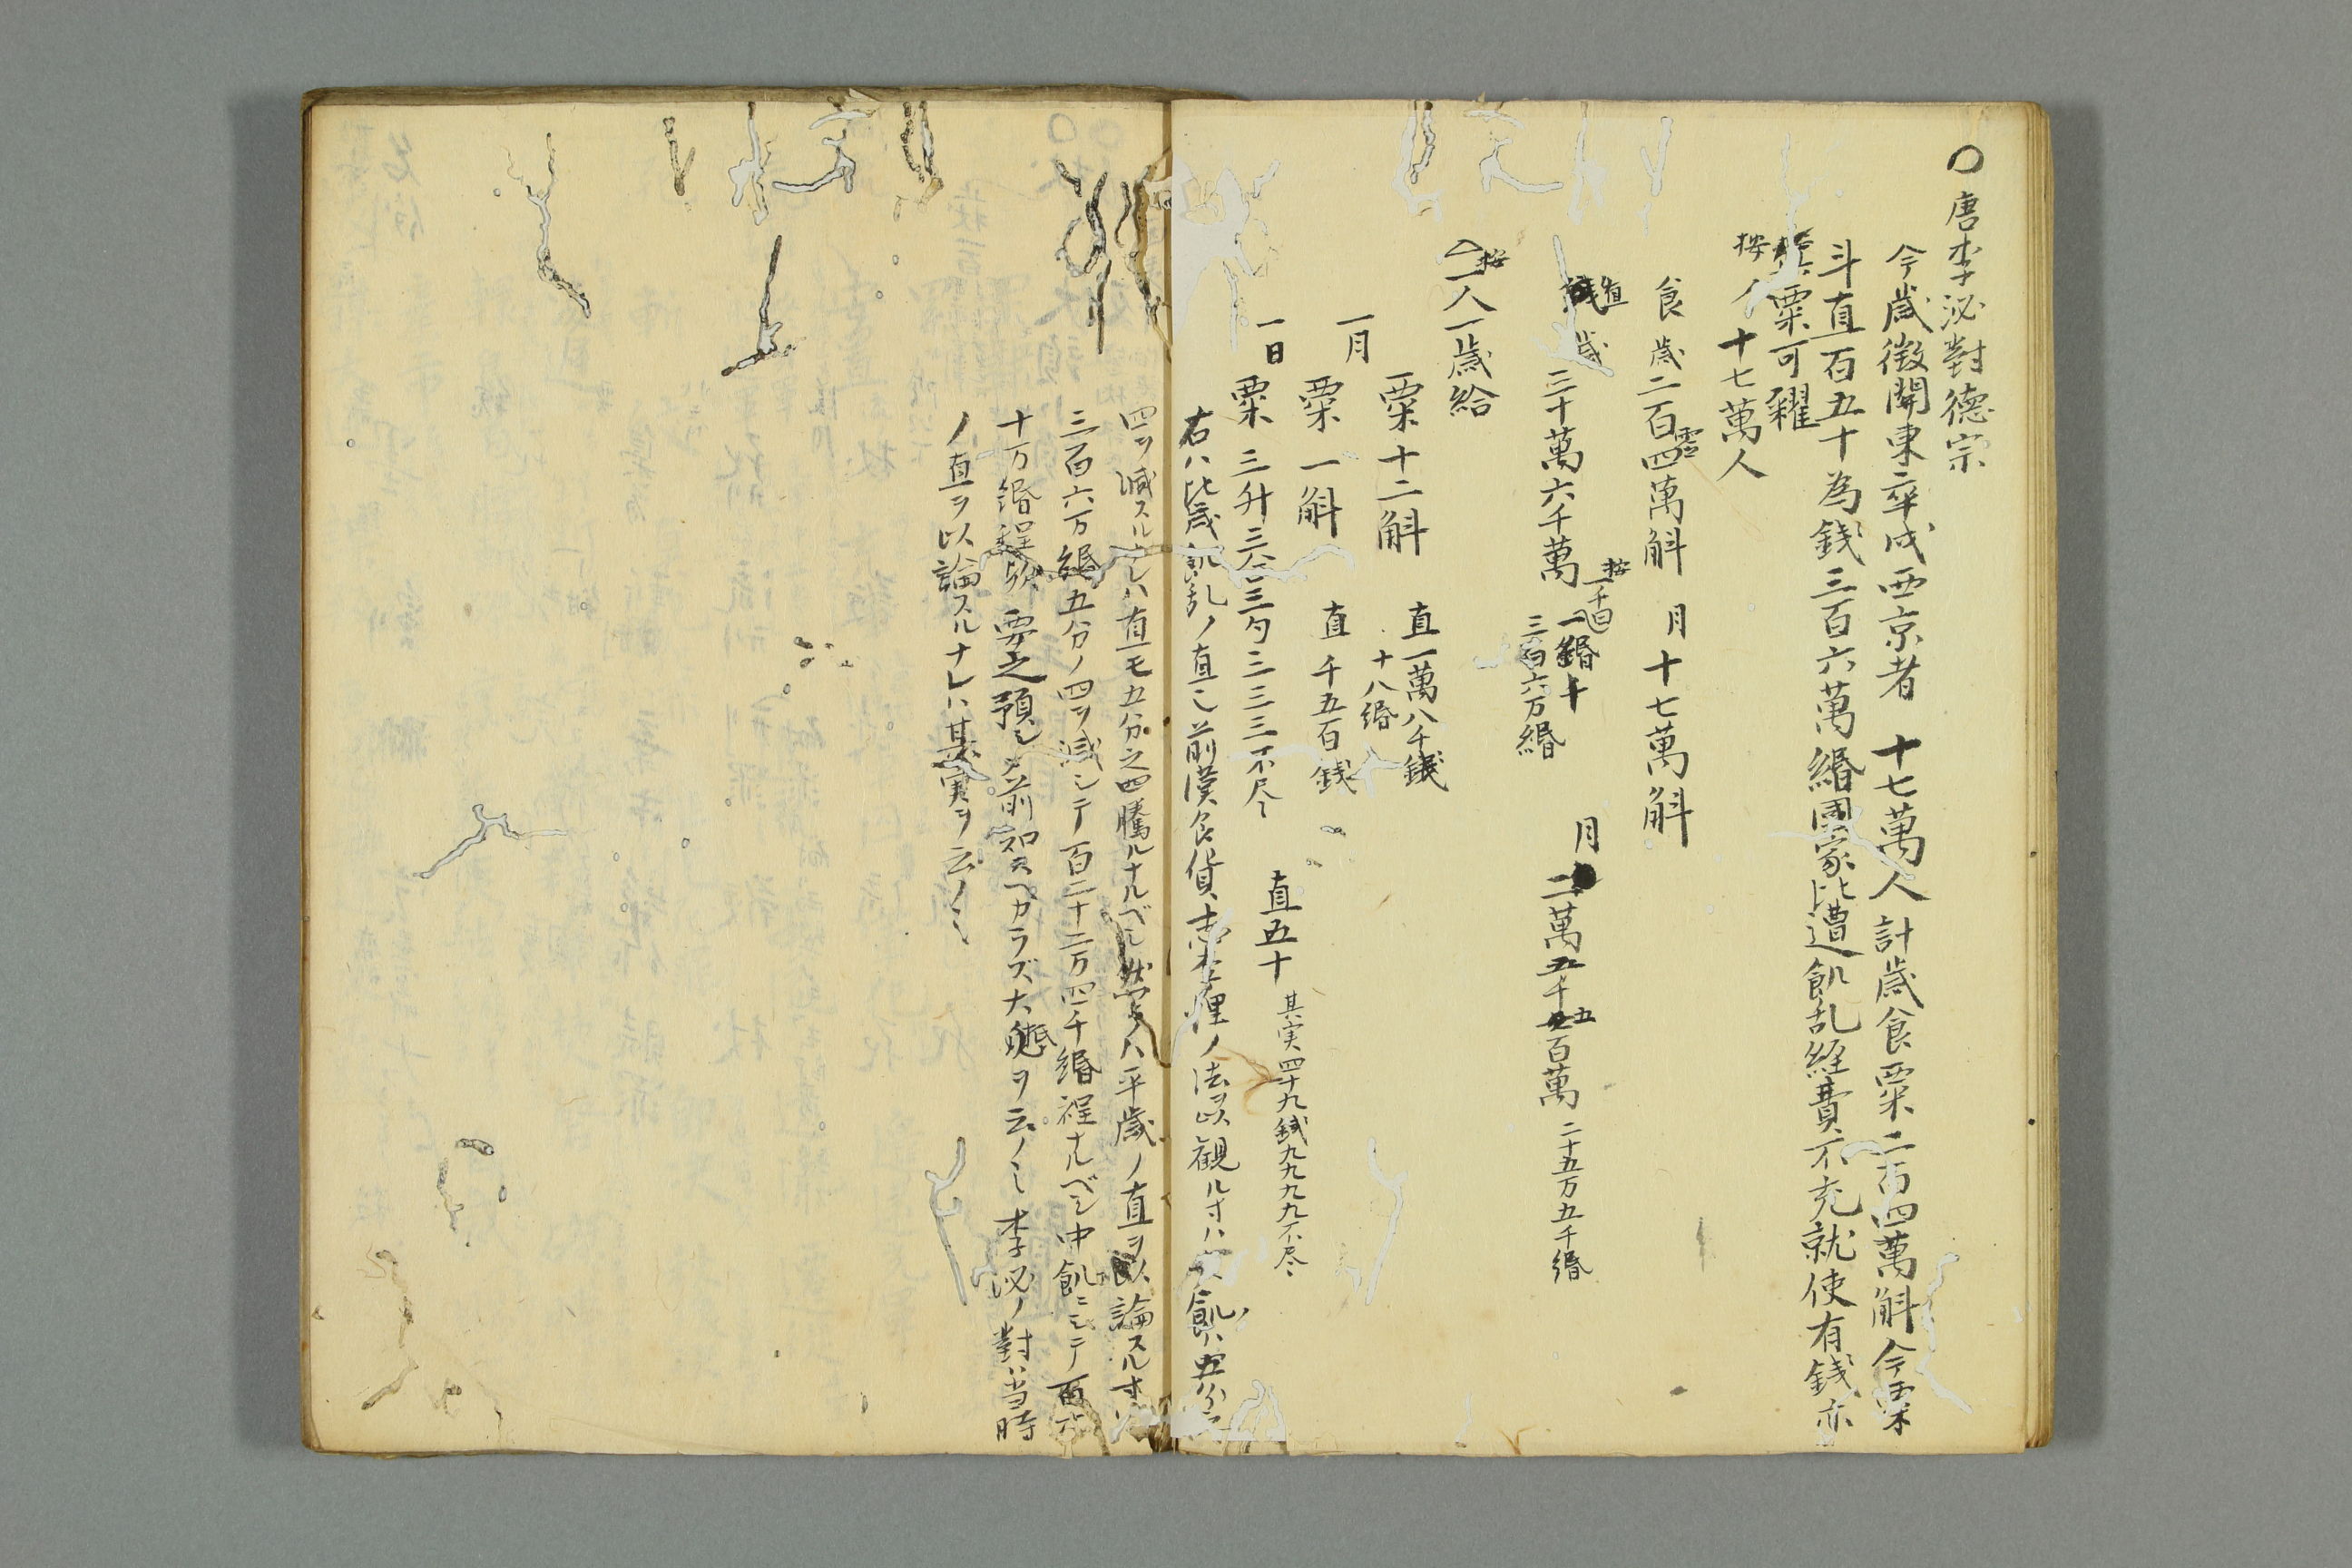 〇唐李泌對德宗
今歳徴關東卒戍西京者十七萬人計歳食粟二百四萬斛今粟
斗直百五十為錢三百六萬緡國家比遭飢乱経費不充就使有錢亦
無粟可糴
按人十七萬人
食歳二百零四萬斛 月十七萬斛
直歳三十萬六千萬 按一千曰一緡 三百六万緡 月二萬五千五百萬 二十五万五千緡
按一人一歳給
粟十二斛 直一萬八千錢 十八緡
一月 粟一斛 直千五百錢
一日 粟三升三合三勺三三三不尽 直五十 其実四十九錢九九九九不尽
右ハ比歳飢乱ノ直也前漢食貨志李悝ノ法以観ル寸ハ大飢ハ五分之
四ヲ減スルナレハ直モ五分之四騰ルナルベシ然ハ平歳ノ直ヲ以論スル寸ハ
三百六万緡五分ノ四ヲ減シテ百二十二万四千緡程ナルベシ中飢ニシテ百六
十万緡程歟要之預シメ前知スヘカラズ大抵ヲ云ノミ李泌ノ對ハ当時
ノ直ヲ以論スルナレハ其実ヲ云ノミ